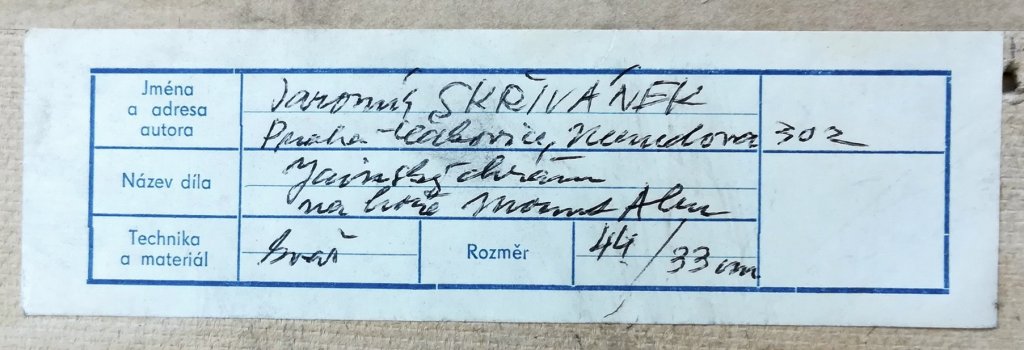 Jména
a adresa
autora
Jaromír SKŘIVÁNEK
Praha-Čakovice, Nerudova 302
Název díla
Jainský chrám
na hoře Mount Abu
Technika
a materiál
kvaš
Rozměr
44/33 cm